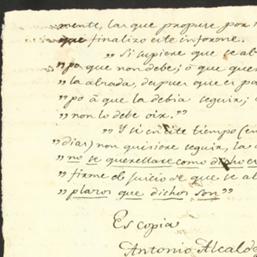 mente, las que propuse, por n
que finalizo este informe.
" Si supiere que se al
" po que non debe; ó que que
" la alzada, despues que es pa
" po á que la debia seguir; n
" non lo debe oir."
" Y si en este tiempo (en
" dias) non quisiere seguir, la a
" no se querellare como dicho es
" firme el juicio de que se al
" plazos que dichos son"
Es copia
Antonio Alcald